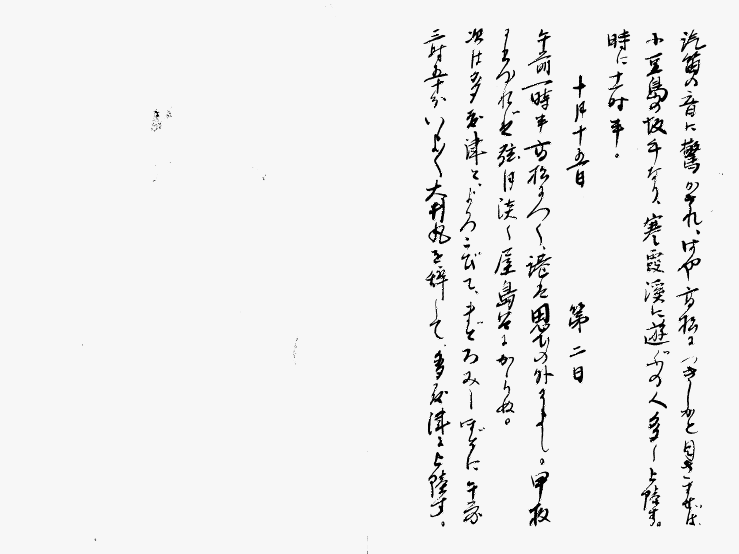 汽笛の音に驚かされ、はや高松につきしかと目をこすれば、
小豆島の坂手なり、寒霞渓に遊ぶの人多く上陸す。
時に十一時半。
十月十五日　第二日
午前一時半高松につく、港は思ひの外によし。甲板
にいづれば弦月淡く屋島にかゝりぬ。
次は多度津と、よろこびて、まどろみしほどに午前
三時五十分いよ〱大利丸を辞して、多度津に上陸す。